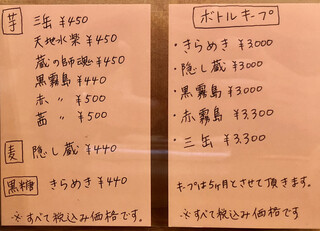 芋 三岳 ¥450
天地水楽 ¥450
蔵の師魂 ¥450
黒霧島 ¥440
赤 〃 ¥500
茜 〃 ¥500
麦 隠し蔵 ¥440
黒糖 きらめき ¥440
※すべて税込み価格です。
ボトルキープ
・きらめき ¥3000
・隠し蔵 ¥3000
・黒霧島 ¥3000
・赤霧島 ¥3,300
・三岳 ¥3,300
キープは5ヶ月とさせて頂きます。
※すべて税込み価格です。